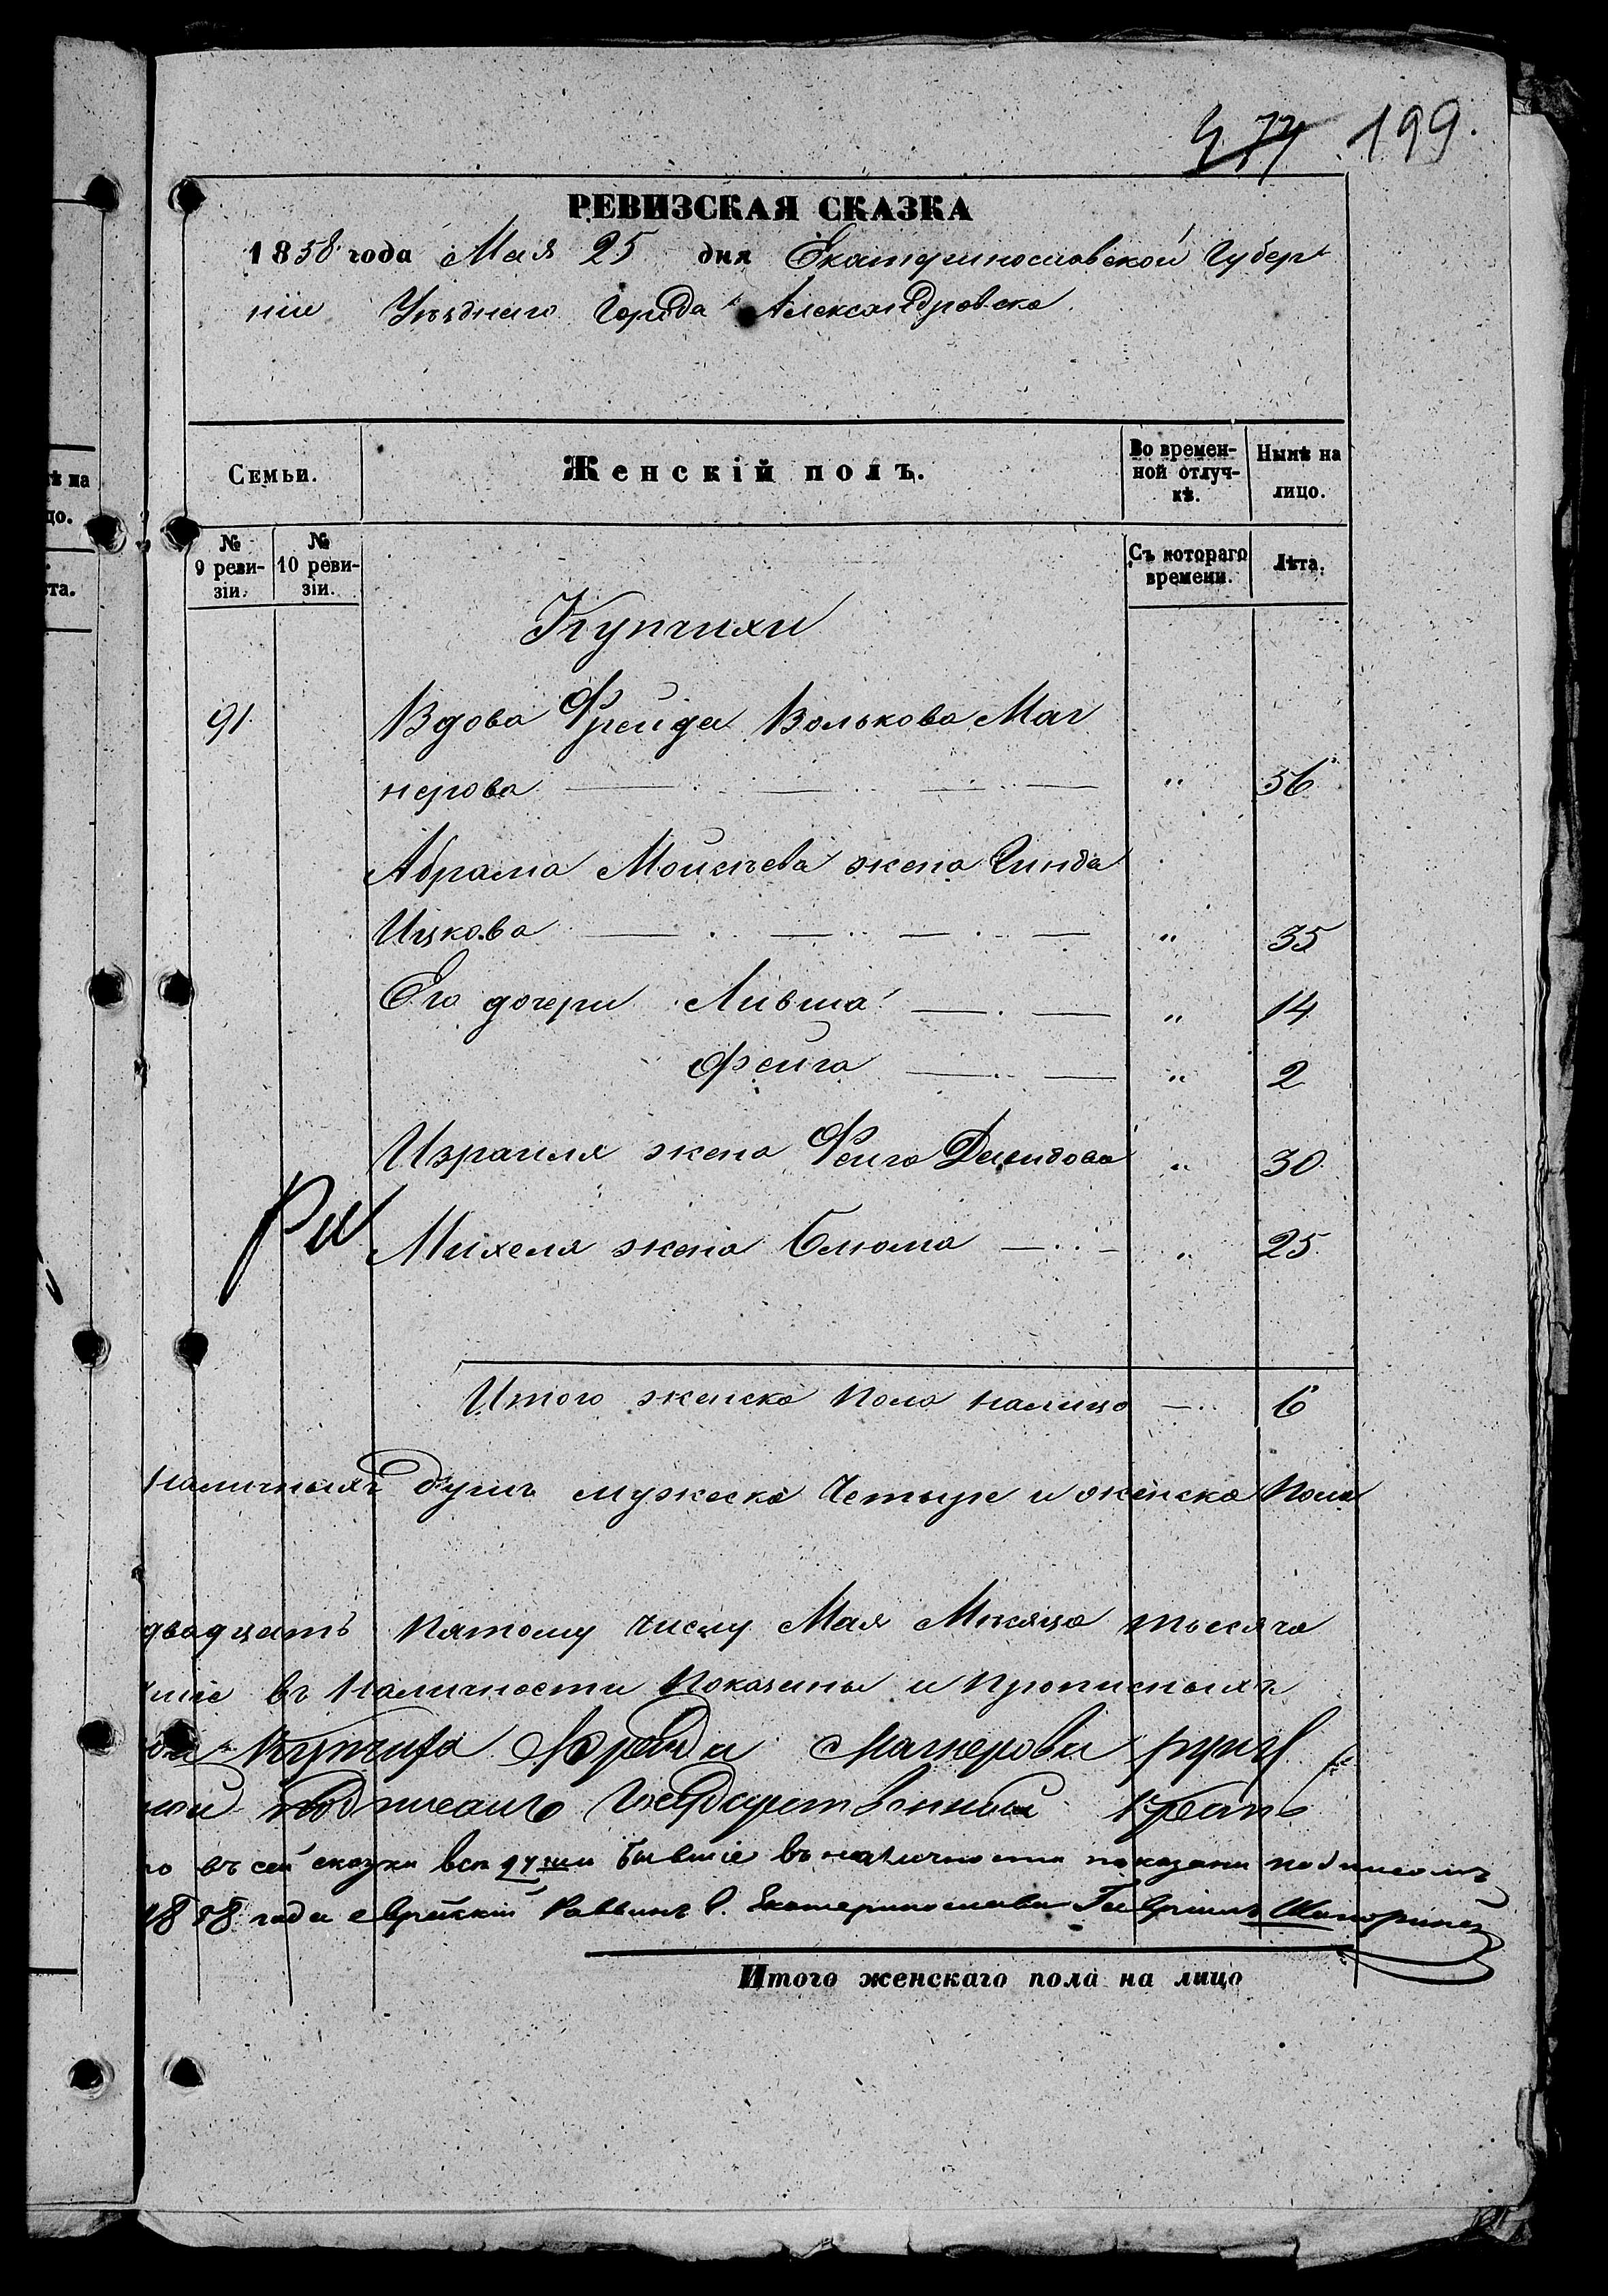 199.
РЕВИЗСКАЯ СКАЗКА
1858 года Мая 25 дня Екатеринославской Губер
ніи Уѣзднаго Города Александровска
Семьи.
Женскій полъ.
Во времен-
ной отлуч-
кѣ.
Нынѣ на
лицо.
№
9 реви-
зіи.
№
10 реви-
зіи.
Съ котораго
времени.
Лѣта.
Купчихи
91 Вдова Фрейда Волькова Маг
нерова " 56
Абрама Моисѣева жена Гинда
Ицкова " 35
Его дочери Ливша " 14
Фейга " 2
Израиля жена Фейга Давидова " 30
Михеля жена Блюма " 25
Итого женска пола налицо 6
наличныхъ душъ мужеска четыре и женска пола
двадцать пятому числу Мая Мѣсяца тысяча
шіе въ наличности показаны и прописныхъ
Купчиха Фрейда Магнерова
въ сей сказки всѣ души бывшіе въ наличности показаны подписомъ
1858 года еврейскій Раввинъ Г. Екатеринослава Гавріилъ
Итого женскаго пола на лицо